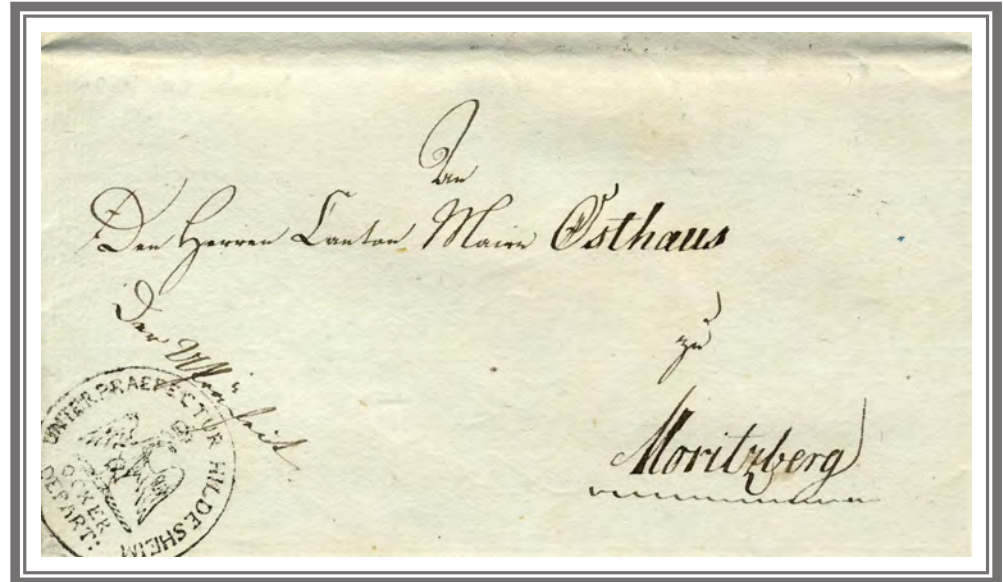 An
Den Herren Canton Maire Osthaus
zu
Moritzberg
Der
UNTER PRAEFECTUR HILDESHEIM
OCKER
DEPART: